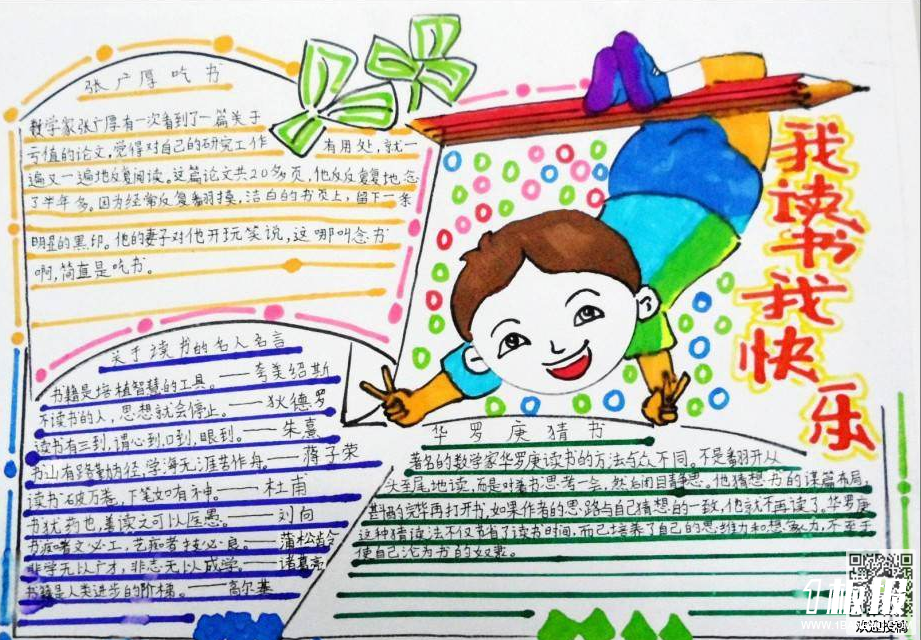 张广厚吃书
数学家张广厚有一次看到了一篇关于
亏值的论文,觉得对自己的研究工作 有用处,就一
遍又一遍地反复阅读。这篇论文共20多页,他反反复复地念
了半年多。因为经常反复翻摸,洁白的书页上,留下一条
明显的黑印。他的妻子对他开玩笑说,这哪叫念书
啊,简直是吃书。
我读书我快乐
关于读书的名人名言
书籍是培植智慧的工具。——夸美绍斯
不读书的人,思想就会停止。——狄德罗
读书有三到,谓心到,口到,眼到。——朱熹
书山有路勤为径,学海无涯苦作舟。——蒋子荣
读书破万卷,下笔如有神。——杜甫
书犹药也,善读之可以医愚。——刘向
书痴者文必工,艺痴者技必良。——蒲松龄
非学无以广才,非志无以成学。——诸葛亮
书籍是人类进步的阶梯。——高尔基
华罗庚猜书
著名的数学家华罗庚读书的方法与众不同。不是翻开从
头至尾地读,而是对着书思考一会,然后闭目静思。他猜想书的谋篇布局,
完毕再打开书,如果作者的思路与自己猜想的一致,他就不再读了。华罗庚
这种猜读法不仅节省了读书时间,而已培养了自己的思维力和想象力,不至于
使自己沦为书的奴隶。
欢迎投稿